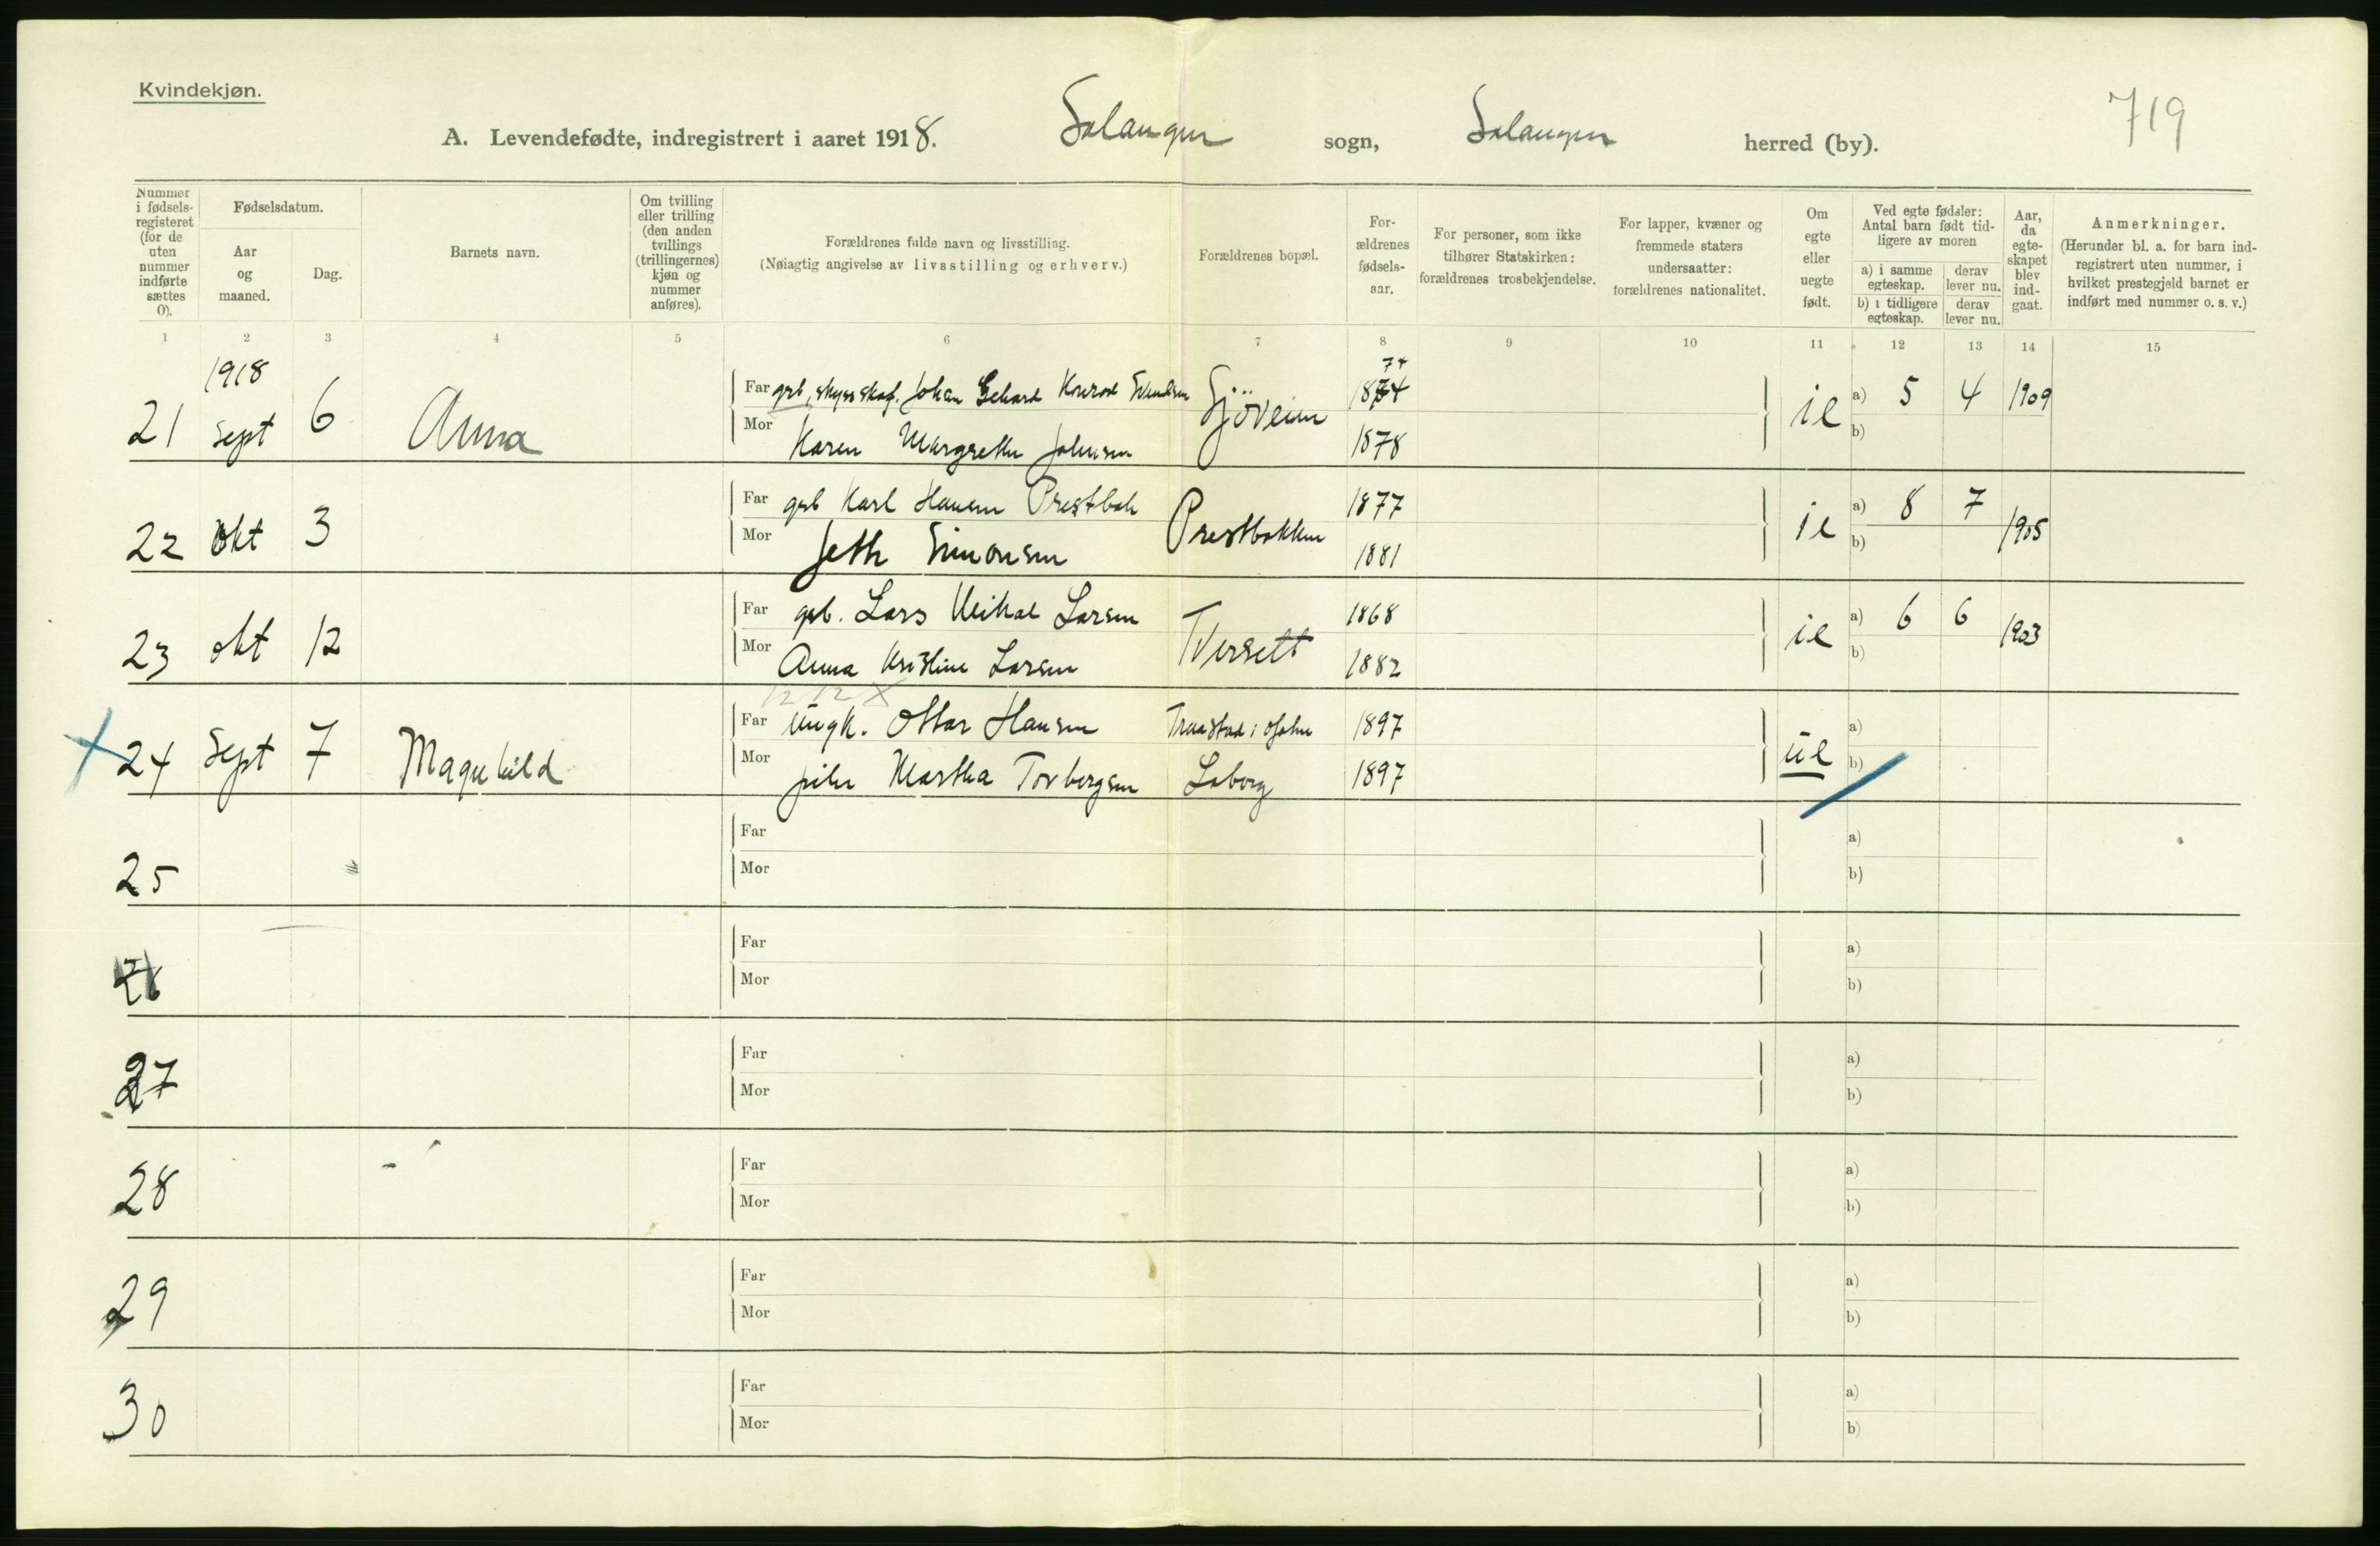 Kvindekjøn.
719
A. Levendefødte, indregistrert i aaret 1918. Salangen sogn, Salangen herred (by).
Nummer i fødsels-registeret (for de uten nummer indførte sættes 0).
Fødselsdatum.
Aar og maaned.
Dag.
Barnets navn.
Om tvilling eller trilling (den anden tvillings (trillingernes) kjøn og nummer anføres).
Forældrenes fulde navn og livsstilling.
(Nøiagtig angivelse av livsstilling og erhverv.)
Forældrenes bopæl.
For-ældrenes fødsels-aar.
For personer, som ikke tilhører Statskirken: forældrenes trosbekjendelse.
For lapper, kvæner og fremmede staters undersaatter: forældrenes nationalitet.
Om egte eller uegte født.
Ved egte fødsler: Antal barn født tid-ligere av moren
a) i samme egteskap.
derav lever nu.
b) i tidligere egteskap.
derav lever nu.
Aar, da egte-skapet blev ind-gaat.
Anmerkninger.
(Herunder bl. a. for barn ind-registrert uten nummer, i hvilket prestegjeld barnet er indført med nummer o. s. v.)
1 2 3 4 5 6 7 8 9 10 11 12 13 14 15
1918
74
21 Sept 6 Anna Far grb, skysskaf. Johan Gehard Konrad Svendsen Sjöveien 1874 ie a) 5 4 1909
Mor Karen Margrethe Johnsen 1878 b)
22 Okt 3 Far grb Karl Hansen Prestbak Prestbakken 1877 ie a) 8 7 1905
Mor Jeth Simonsen 1881 b)
23 okt 12 Far grb. Lars Mikal Larsen Tversett 1868 ie a) 6 6 1903
Mor Anna Kristine Larsen 1882 b)
12 12 X
X 24 Sept 7 Magnhild Far Ungk. Ottar Hansen Traastad i 1897 ue a)
Mor pike Martha Torbergsen Laberg 1897 b)
25 Far a)
Mor b)
26 Far a)
Mor b)
27 Far a)
Mor b)
28 Far a)
Mor b)
29 Far a)
Mor b)
30 Far a)
Mor b)